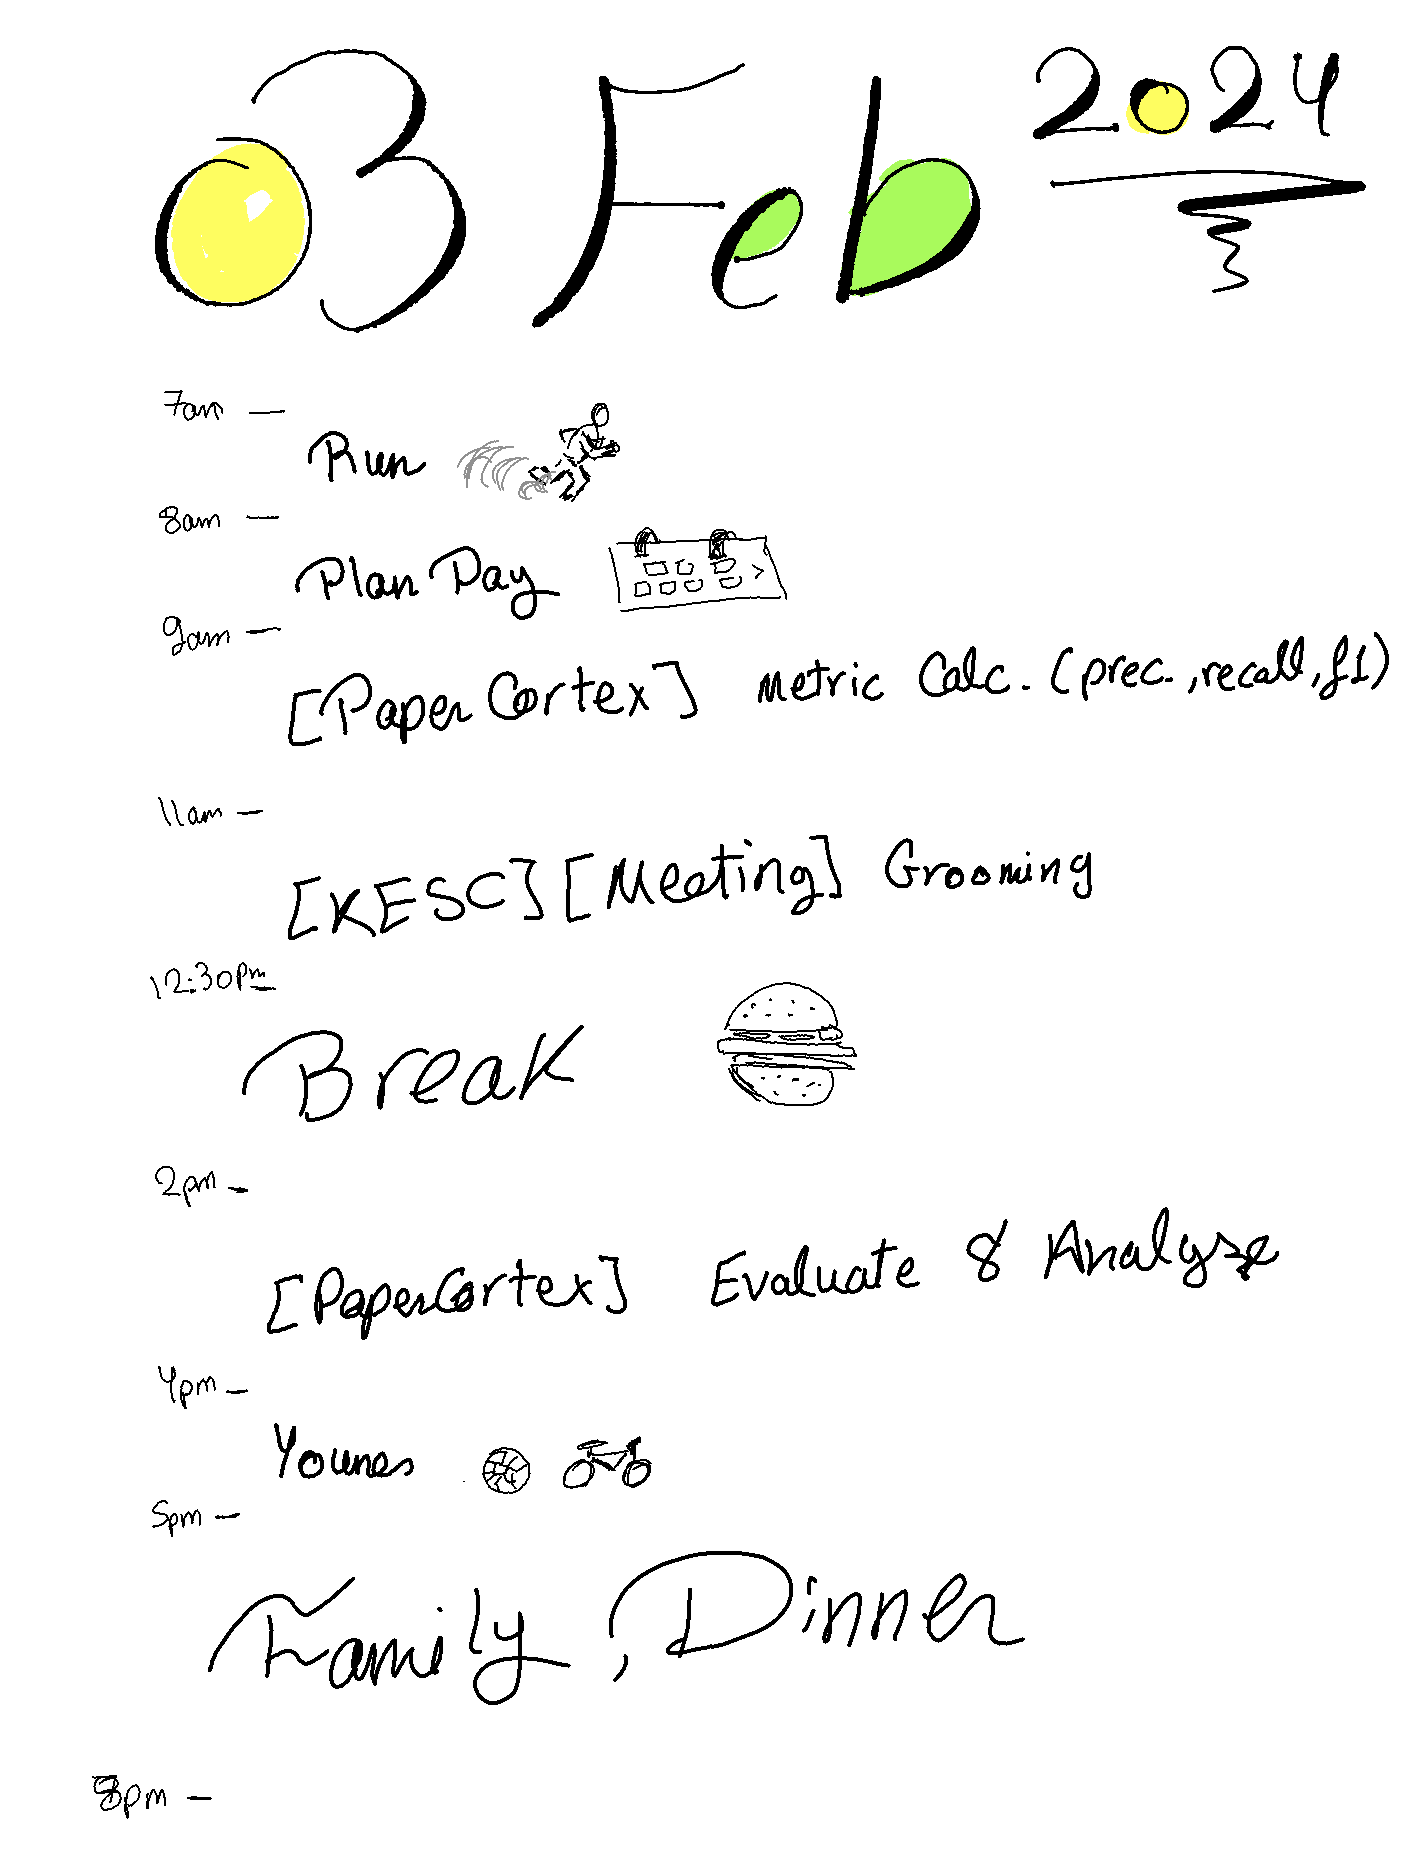 03 Feb 2024
7am —
Run
8am —
Plan Day
9am —
[Paper Cortex] Metric Calc. (prec., recall, f1)
11am —
[KESC] [Meeting] Grooming
12:30pm —
Break
2pm —
[PaperCortex] Evaluate & Analyze
4pm —
Younes
5pm —
Family, Dinner
8pm —